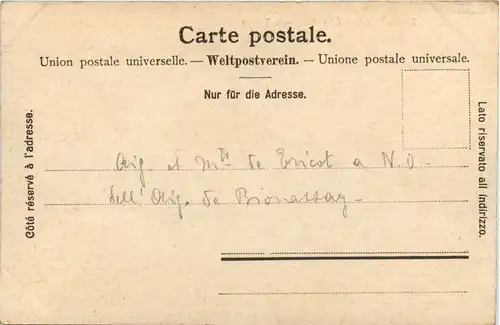 Carte postale.
Union postale universelle. — Weltpostverein. — Unione postale universale.
Nur für die Adresse.
Côté réservé à l'adresse.
Lato riservato all indirizzo.
Aig et Mts de Tricot a N.O-
dell' Aig. de Bionassay-